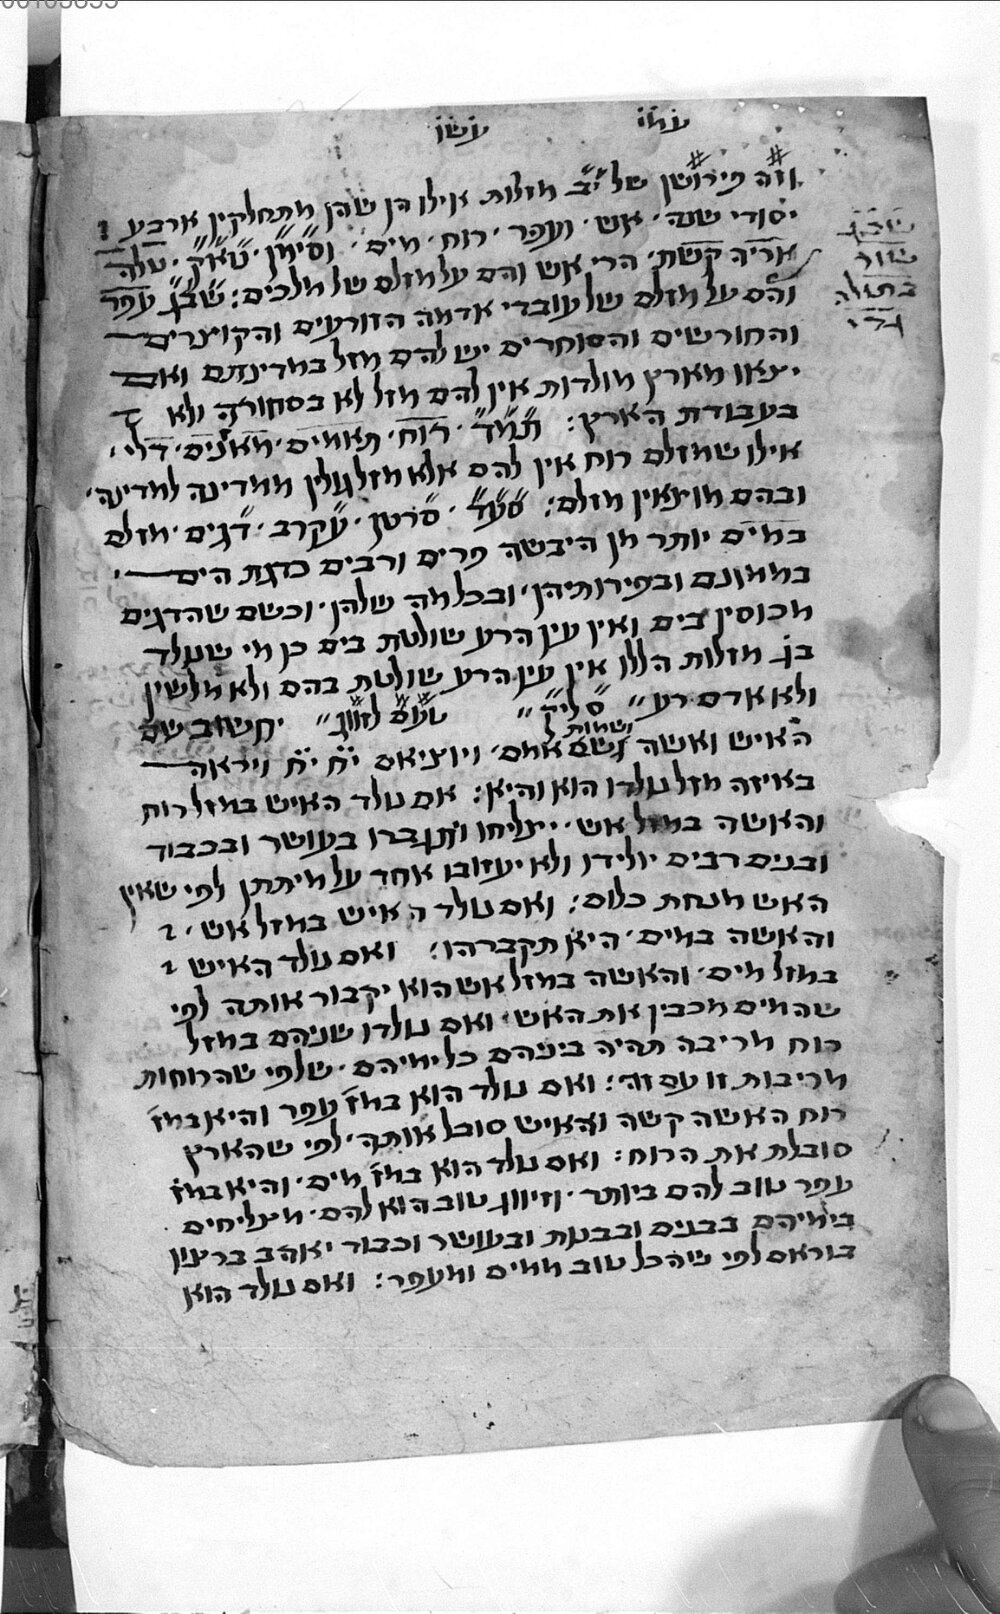 עמי עשו
וזה פירושן של י״ב מזלות אילו הן שהן מתחלקין ארבע
יסודי שנה׳ אש׳ ועפר׳ רוח׳ מים׳ וסימן׳ טא״ק׳ טלה
אריה קשת׳ הרי אש והם על מזלם של מלכים: שב״ג עפר
והם על מזלם של עובדי אדמה הזורעים והקוצרים
והחורשים והסוחרים יש להם מזל במדינתם ואם
יצאו מארץ מולדות אין להם מזל לא בסחורה ולא
בעבודת הארץ: תמ״ד׳ רוח׳ תאומים׳ מאזנים׳ דלי׳
אילו שמזלם רוח אין להם אלא מזל גולין ממדינה למדינה׳
ובהם מוצאין מזלם: סע״ד׳ סרטן׳ עקרב׳ דגים׳ מזלם
במים יותר מן היבשה פרים ורבים כדגת הים
בממונם ובפירותיהן׳ ובכל מה שלהן׳ וכשם שהדגים
מכוסין בים ואין עין הרע שולטת בים כן מי שנולד
בן מזלות הללו אין עין הרע שולטת בהם ולא מלשין
ולא אדם רע״ סליק״ טעם לזווג״ יחשוב שם
האיש ואשה ושם אמם׳ ויוציאם י״ח י״ח ויראה
ושמות
באיזה מזל נולדו הוא והיא: אם נולד האיש במזל רוח
והאשה במזל אש׳ יצליחו ויתגברו בעושר ובכבוד
ובנים רבים יולידו ולא יעזובו אחד על מיתתן לפי שאין
האש מנחת כלום: ואם נולד האיש במזל אש׳
והאשה במים׳ היא תקברהו: ואם נולד האיש
במזל מים׳ והאשה במזל אש הוא יקבור אותה לפי
שהמים מכבין את האש׳ ואם נולדו שניהם במזל
רוח מריבה תהיה ביניהם כל ימיהם׳ שלפי שהרוחות
מריבות זו עם זה: ואם נולד הוא במז׳ עפר והיא במז׳
רוח האשה קשה והאיש סובל אותה׳ לפי שהארץ
סובלת את הרוח: ואם נולד הוא במז׳ מים׳ והיא במז׳
עפר טוב להם ביותר׳ וזיווג טוב הוא להם׳ מצליחים
בימיהם בבנים ובבנות ובעושר וכבוד יאוהב ברצון
בוראם לפי שהכל טוב ממים ומעפר: ואם נולד הוא
שב״ג
שור
בתולה
גדי